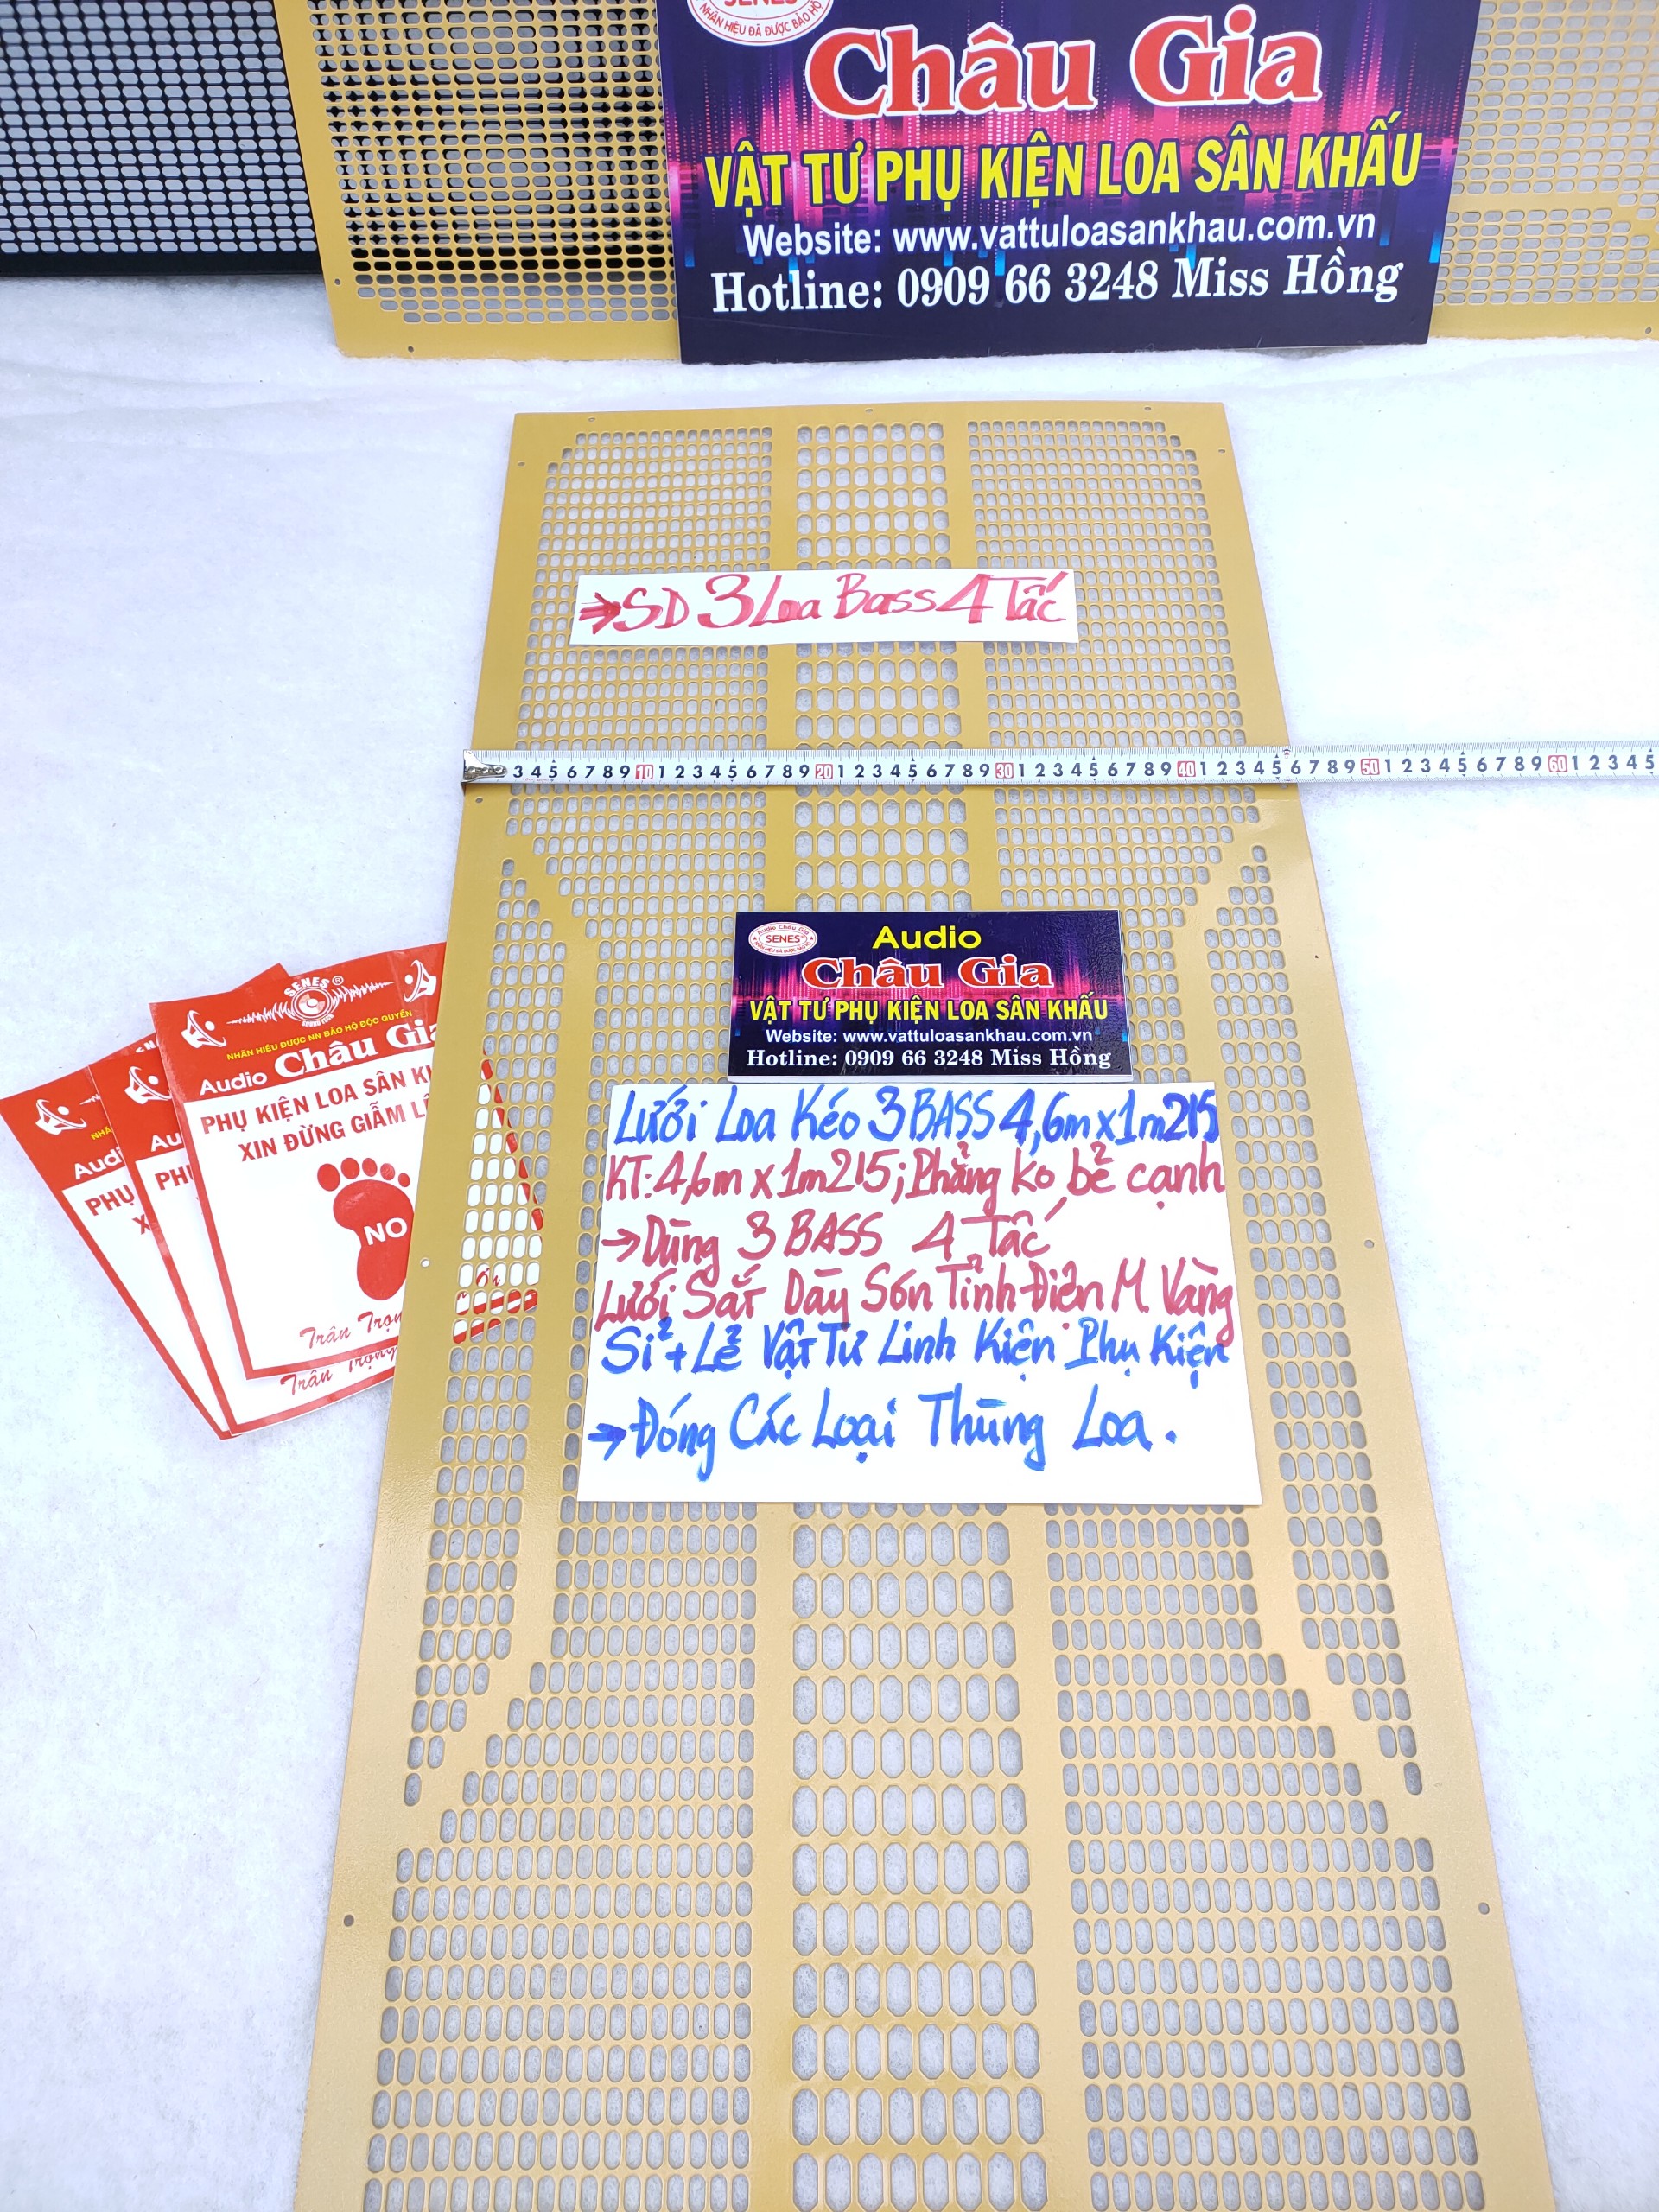 SENES
NHÃN HIỆU ĐÃ ĐƯỢC BẢO HỘ
Châu Gia
VẬT TƯ PHỤ KIỆN LOA SÂN KHẤU
Website: www.vattuloasankhau.com.vn
Hotline: 0909 66 3248 Miss Hồng
→SD 3 Loa Bass 4 Tấc
3 4 5 6 7 8 9 10 1 2 3 4 5 6 7 8 9 20 1 2 3 4 5 6 7 8 9 30 1 2 3 4 5 6 7 8 9 40 1 2 3 4 5 6 7 8 9 50 1 2 3 4 5 6 7 8 9 60 1 2 3 4 5
Audio Châu Gia
SENES
Audio
Châu Gia
VẬT TƯ PHỤ KIỆN LOA SÂN KHẤU
Website: www.vattuloasankhau.com.vn
Hotline: 0909 66 3248 Miss Hồng
Lưới Loa Kéo 3 BASS 4,6m x 1m215
KT: 4,6m x 1m215; Phẳng ko bẻ cạnh
→ Dùng 3 BASS 4 Tấc
Lưới Sắt Dày Sơn Tĩnh Điện M. Vàng
Sỉ + Lẻ Vật Tư Linh Kiện Phụ Kiện
→ Đóng Các Loại Thùng Loa.
SENES®
SOUND TECH
NHÃN HIỆU ĐƯỢC NN BẢO HỘ ĐỘC QUYỀN
Audio Châu Gia
PHỤ KIỆN LOA SÂN K
XIN ĐỪNG GIẪM L
NO
Trân Trọn
Audi
PHỤ
X
Au
PHỤ
Trân Trọng